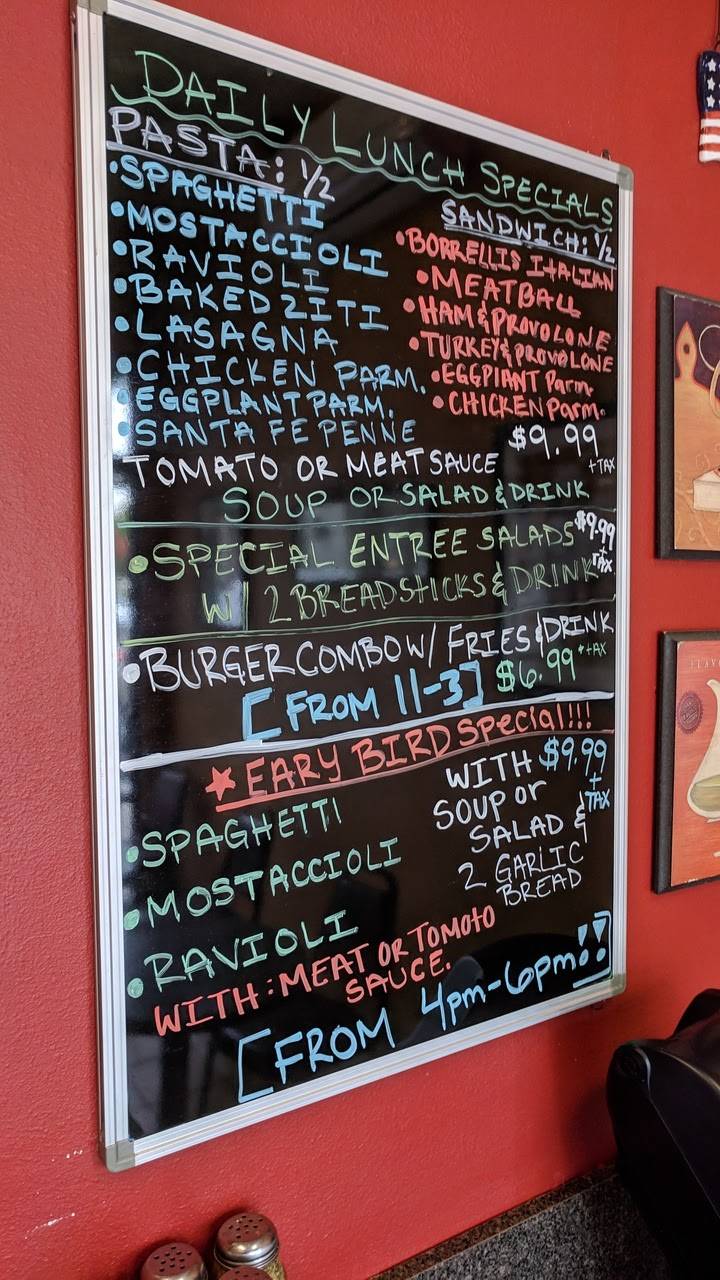 DAILY LUNCH SPECIALS
PASTA: 1/2
•SPAGHETTI
•MOSTACCIOLI
•RAVIOLI
•BAKED ZITI
•LASAGNA
•CHICKEN PARM.
•EGGPLANT PARM.
•SANTA FE PENNE
SANDWICH: 1/2
•BORRELLIS ITALIAN
•MEATBALL
•HAM & PROVOLONE
•TURKEY & PROVOLONE
•EGGPlANT Parm
•CHICKEN Parm.
$9.99
+TAX
TOMATO OR MEAT SAUCE
SOUP OR SALAD & DRINK
•SPECIAL ENTREE SALADS $9.99
+
TAX
W/ 2 BREADSTICKS & DRINK
•BURGER COMBO W/ FRIES & DRINK
[FROM 11-3] $6.99 +TAX
★EARY BIRD Special!!!
•SPAGHETTI
•MOSTACCIOLI
•RAVIOLI
WITH $9.99
+
TAX
SOUP or
SALAD &
2 GARLIC
BREAD
WITH: MEAT OR TOMOTO
SAUCE.
[FROM 4pm-6pm!!]
FLAV